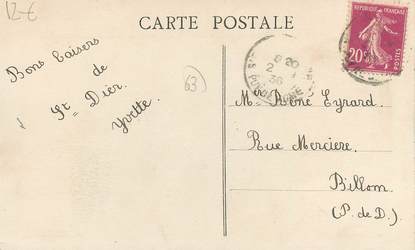 12-€
CARTE POSTALE
RÉPUBLIQUE FRANÇAISE
20c
POSTES
Bons baisers
de
St Dier.
Yvette.
63
M. René Eyrard
Rue Mercière
Billom
(P. de D.)